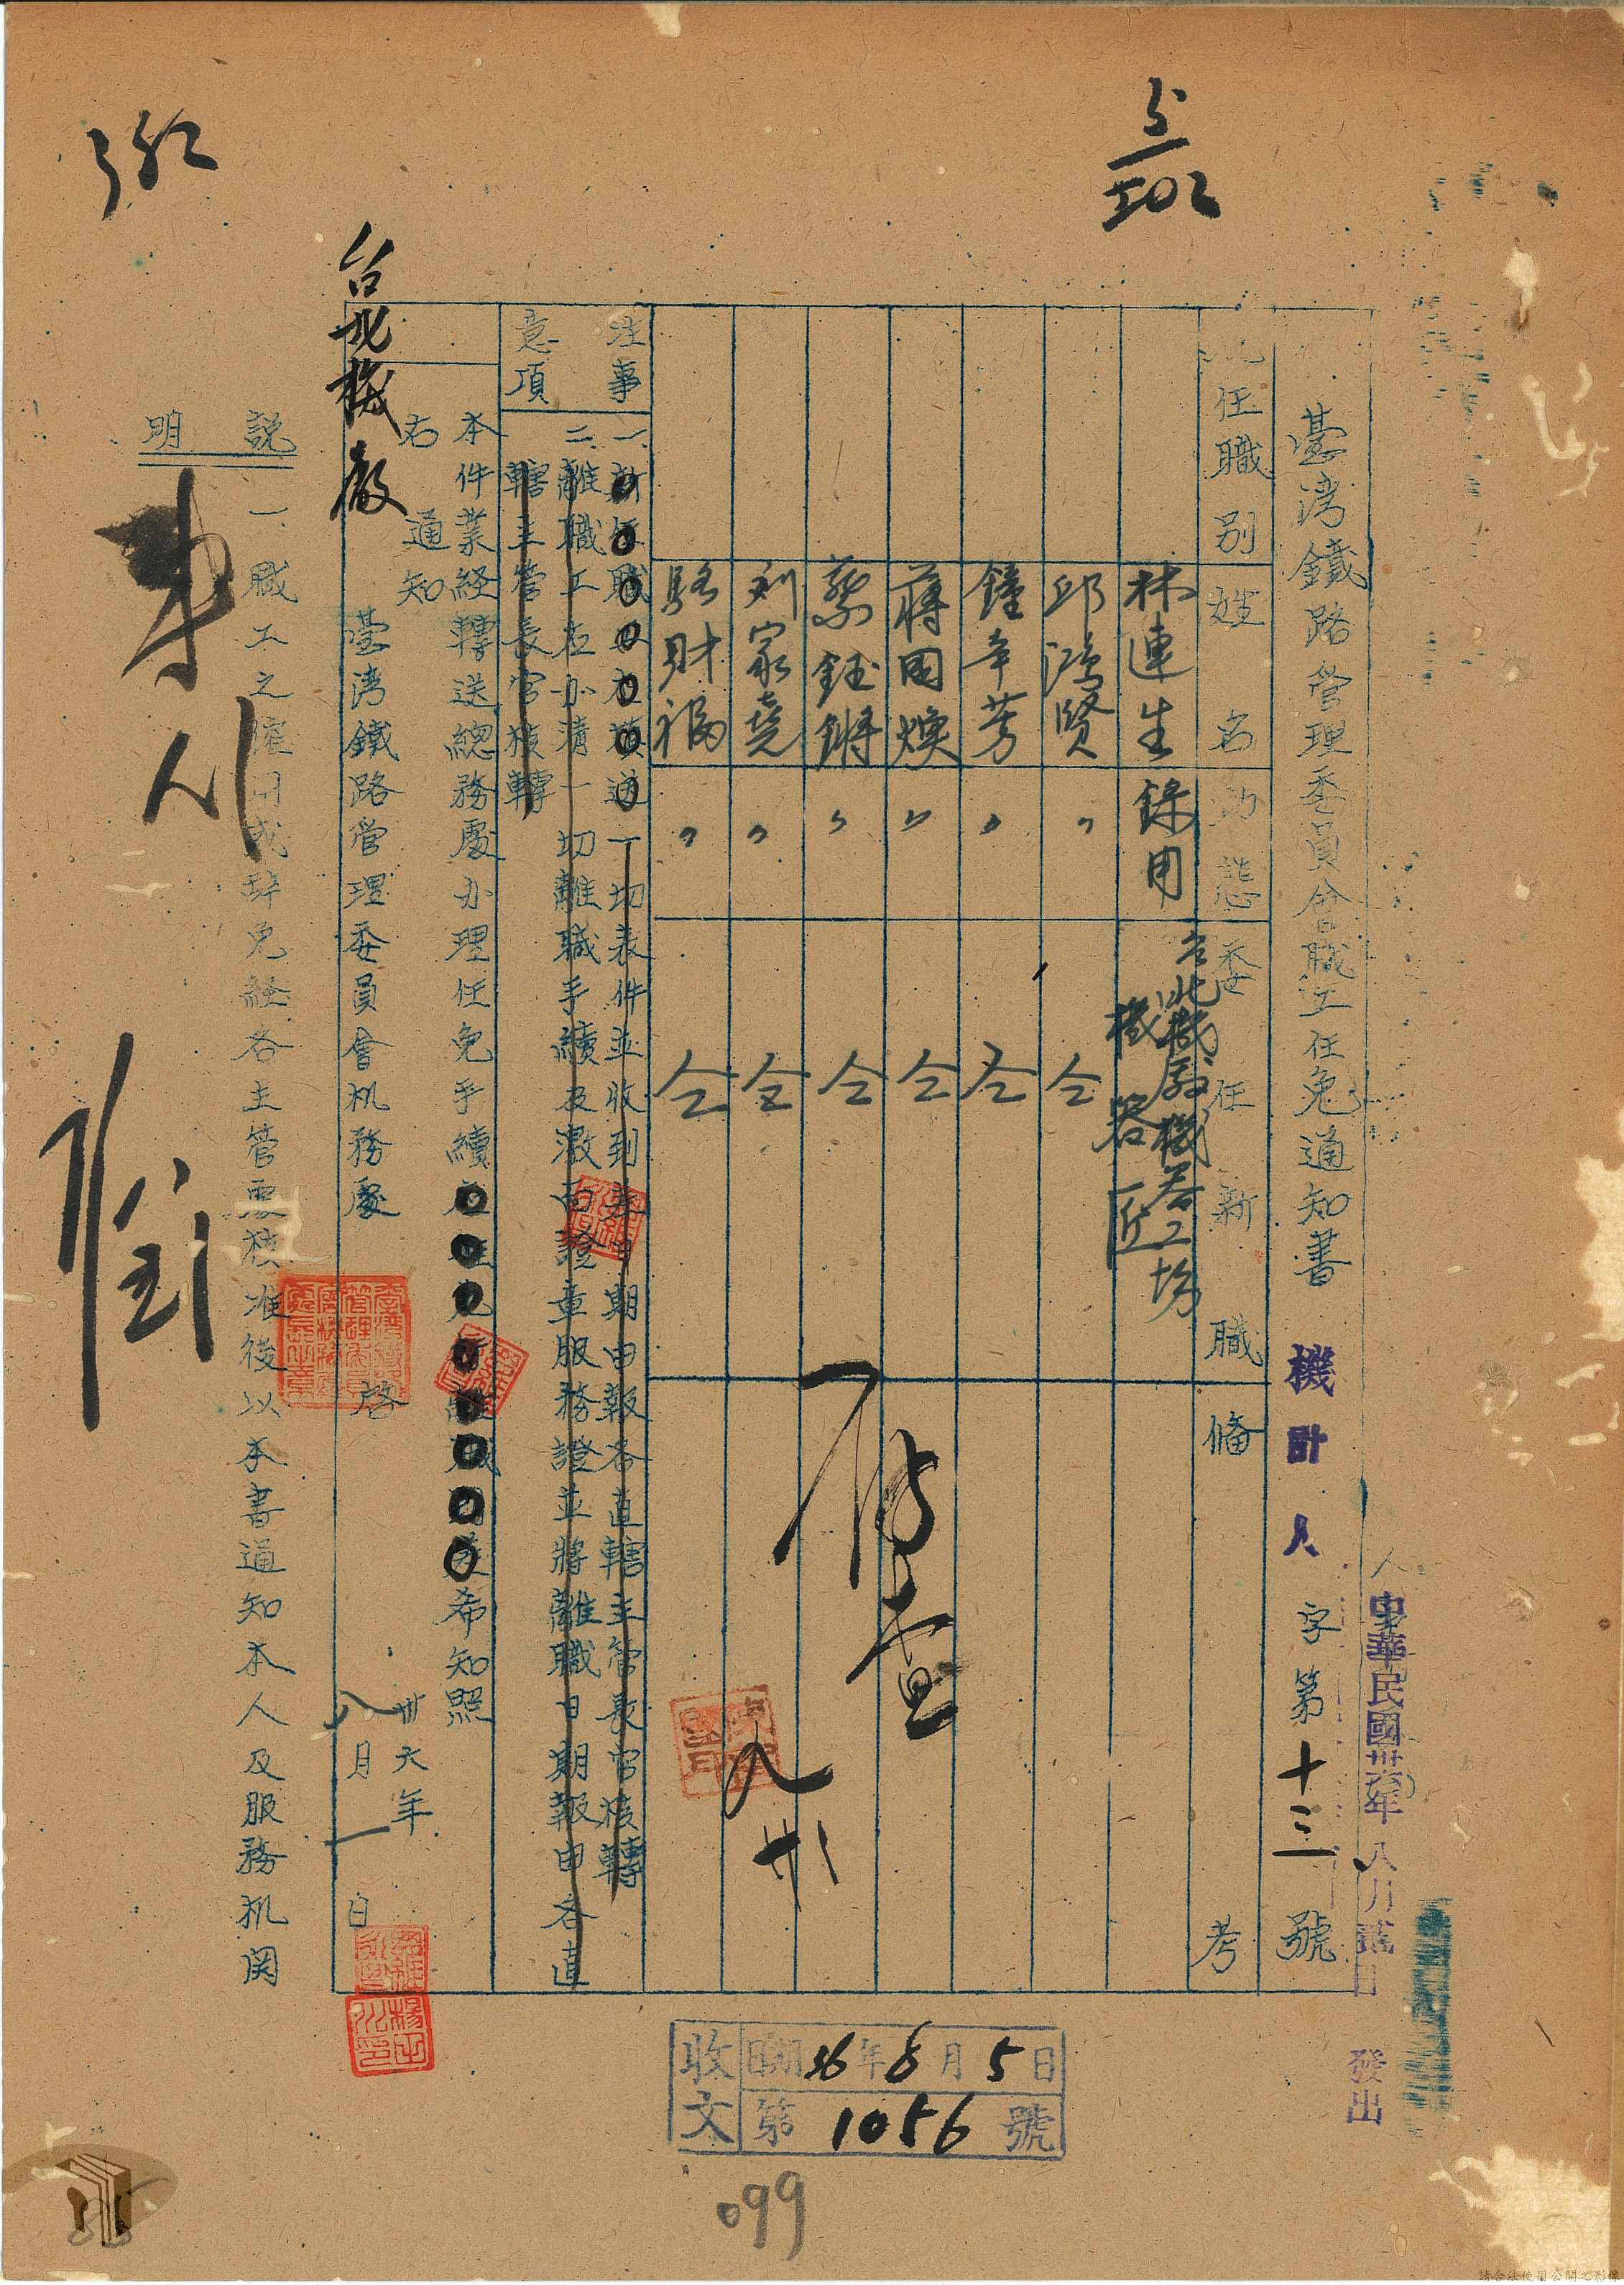 中華民國卅六年八月 日 發出
臺湾鐵路管理委員會職工任免通知書 機計人字第十三號
任職别 姓名 动態 委任新職 備考
林連生 錄用 台北機廠機器工场 機器匠
邱鴻賢 〃 仝
鐘辛芳 〃 仝
蔣国煥 〃 仝
蔡鈺鏘 〃 仝
刘家堯 〃 仝
駱財福 〃 仝
存查
八 廿一
注意事項
一、新任職 一切表件並收到 日期由報各直轄主管長官核轉
二、離職工应办清一切離職手續及缴回證章服務證並將離職日期報由各直
轄主管長官核轉
本件業经轉送總務處办理任免手續 希知照
右通知
台北機廠
臺湾鐵路管理委員會机務處 啓
卅六年八月一日
説明
一、職工之僱用或辞免経各主管 核准後以本書通知本人及服務机関
收文 日期 36年8月5日
第1056號
099
5/502